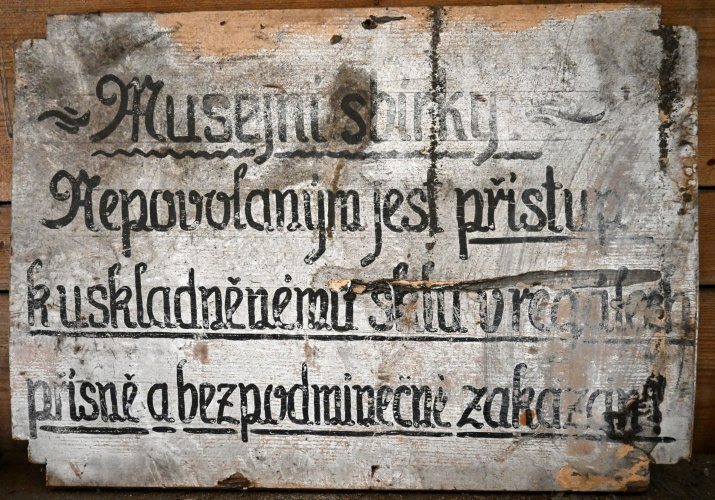 ~ Musejní sbírky. ~
Nepovolaným jest přístup
k uskladněnému sklu v regálech
přísně a bezpodmínečně zakázán!